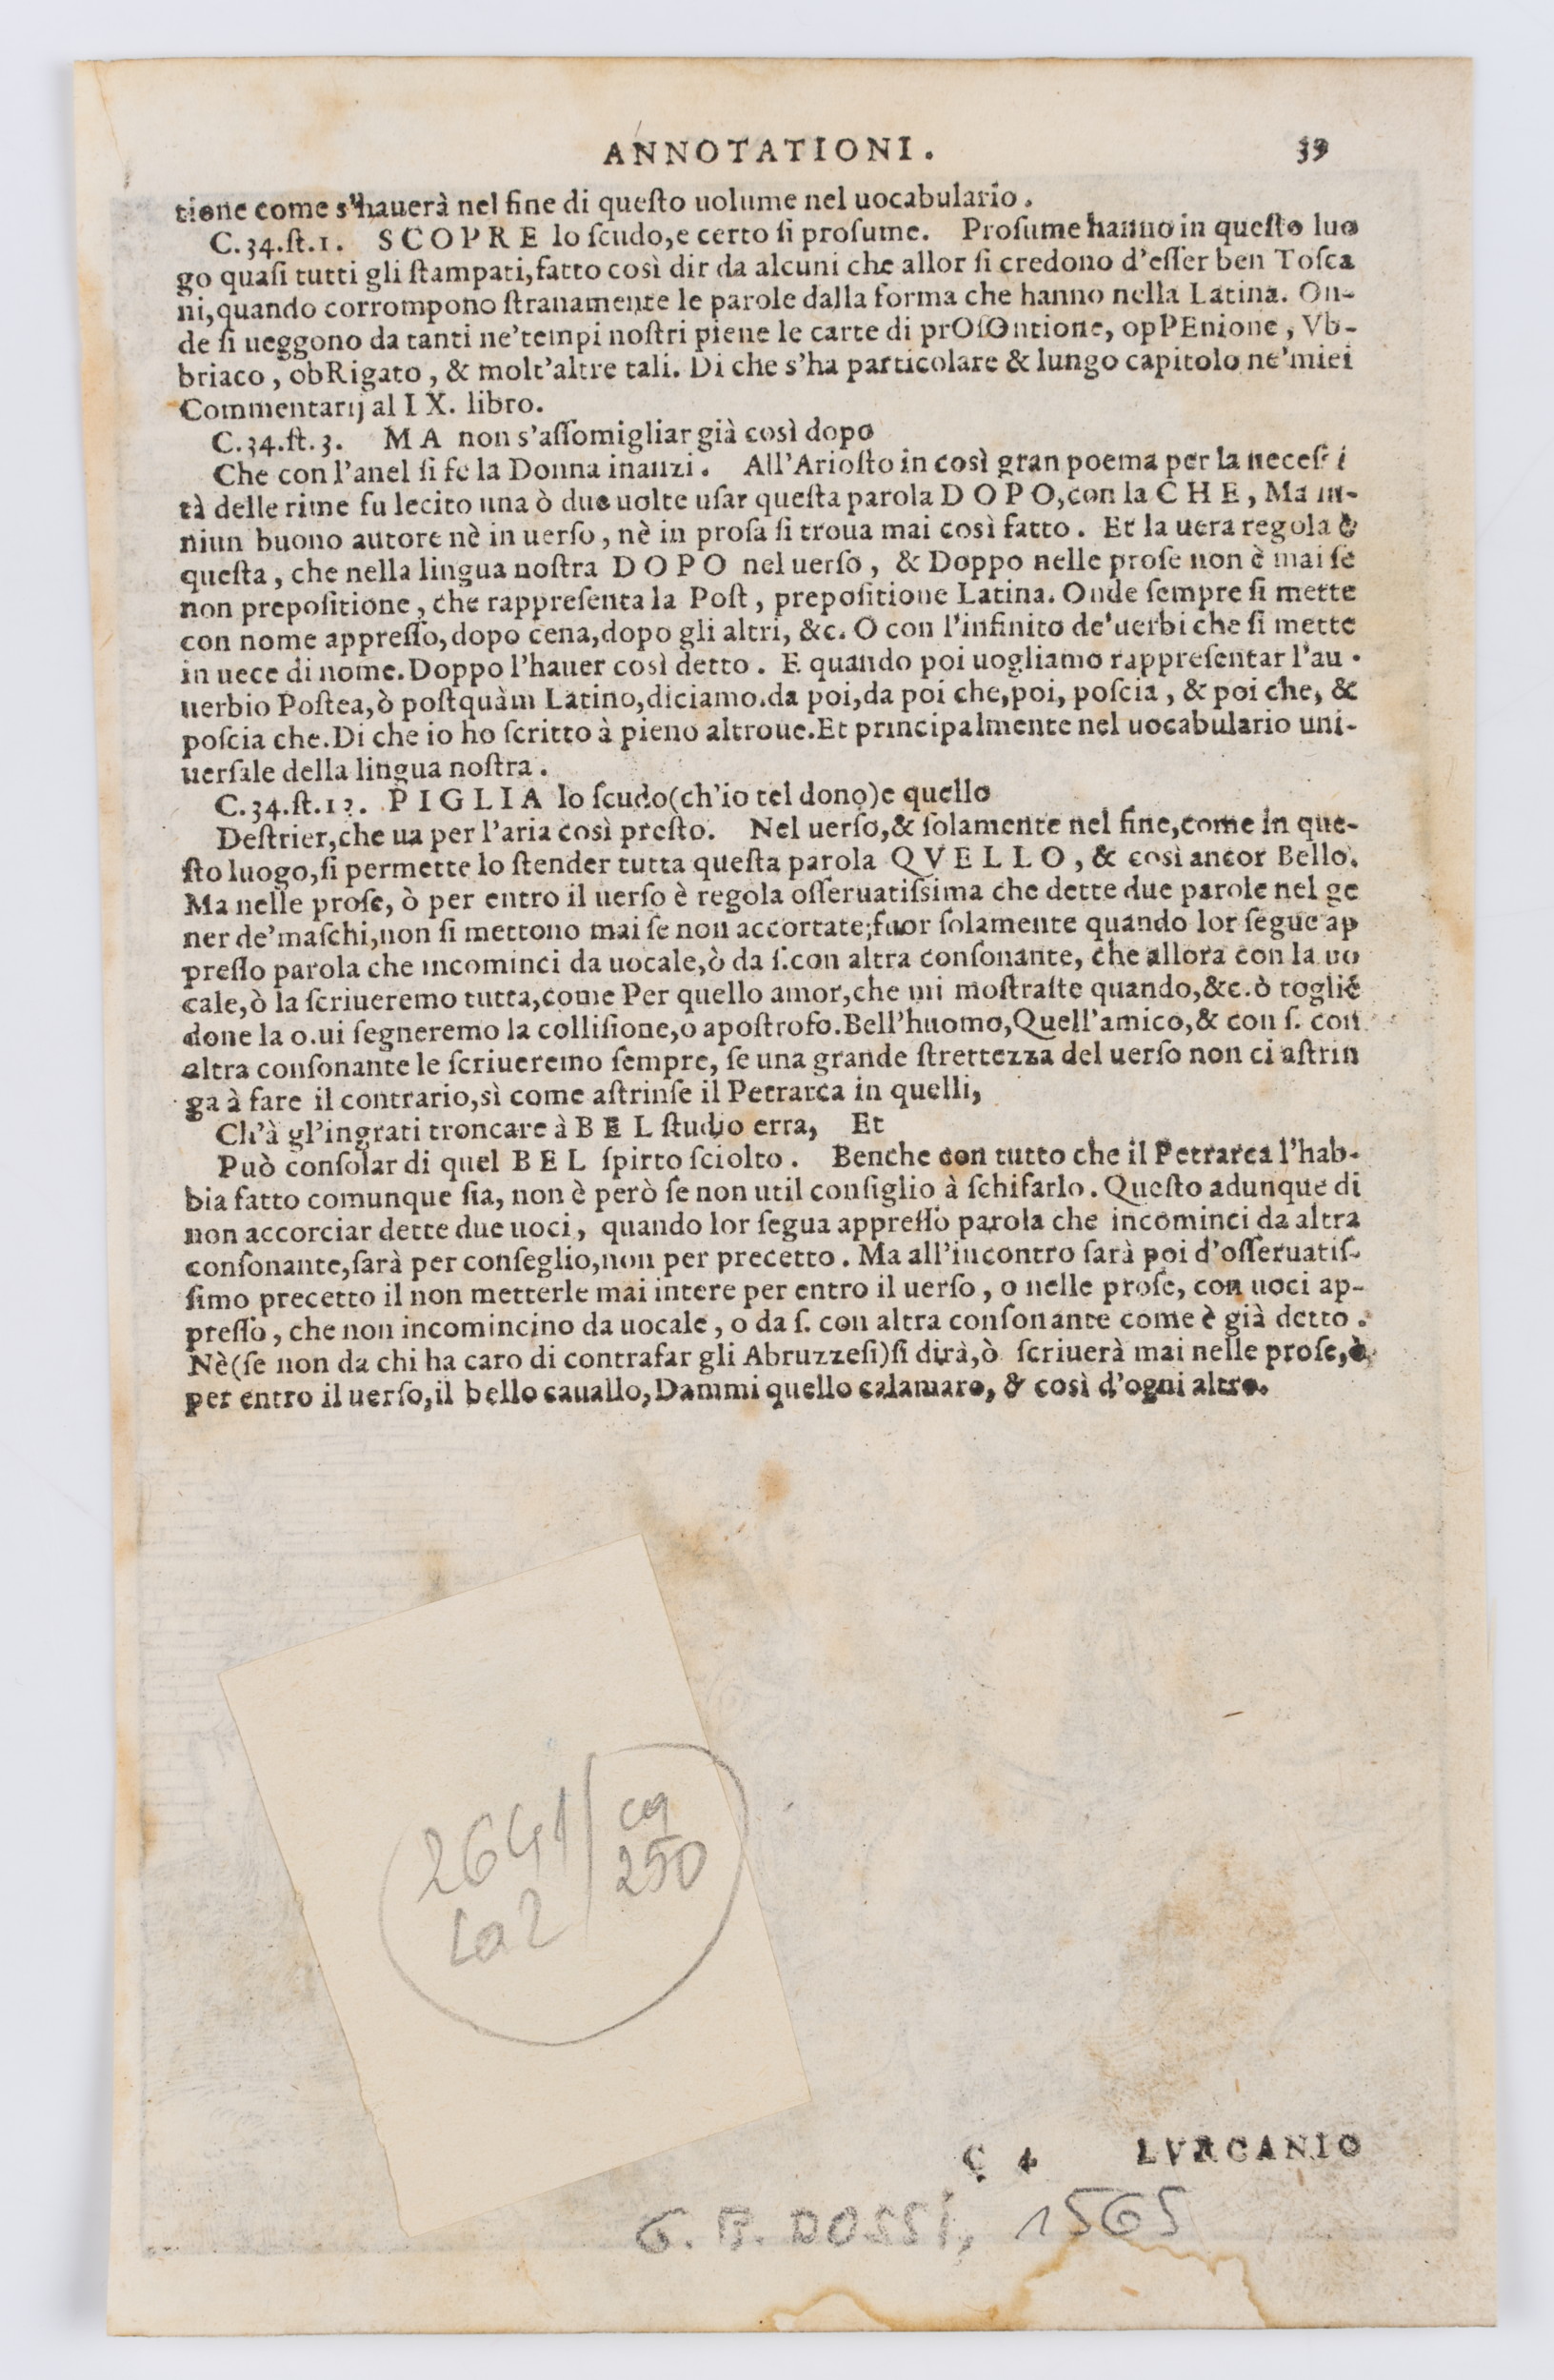 ANNOTATIONI. 39
tione come s'hauerà nel fine di queſto uolume nel uocabulario.
C.34.ſt.1. SCOPRE lo ſcudo,e certo ſi proſume. Proſume hanno in queſto luo
go quaſi tutti gli ſtampati,fatto così dir da alcuni che allor ſi credono d'eſſer ben Toſca
ni,quando corrompono ſtranamente le parole dalla forma che hanno nella Latina. On-
de ſi ueggono da tanti ne'tempi noſtri piene le carte di prOſOntione, opPEnione, Vb-
briaco, obRigato, & molt'altre tali. Di che s'ha particolare & lungo capitolo ne'miei
Commentarij al IX. libro.
C.34.ſt.3. MA non s'aſſomigliar già così dopo
Che con l'anel ſi fe la Donna inanzi. All'Arioſto in così gran poema per la neceſsi
tà delle rime fu lecito una ò due uolte uſar queſta parola DOPO,con la CHE, Ma in-
niun buono autore nè in uerſo, nè in proſa ſi troua mai così fatto. Et la uera regola è
queſta, che nella lingua noſtra DOPO nel uerſo, & Doppo nelle proſe non è mai ſe
non prepoſitione, che rappreſenta la Poſt, prepoſitione Latina. Onde ſempre ſi mette
con nome appreſſo,dopo cena,dopo gli altri, &c. O con l'infinito de'uerbi che ſi mette
in uece di nome.Doppo l'hauer così detto. E quando poi uogliamo rappreſentar l'au-
uerbio Poſtea,ò poſtquàm Latino,diciamo.da poi,da poi che,poi, poſcia, & poi che, &
poſcia che.Di che io ho ſcritto à pieno altroue.Et principalmente nel uocabulario uni-
uerſale della lingua noſtra.
C.34.ſt.12. PIGLIA lo ſcudo(ch'io tel dono)e quello
Deſtrier,che ua per l'aria così preſto. Nel uerſo,& ſolamente nel fine,come in que-
ſto luogo,ſi permette lo ſtender tutta queſta parola QVELLO, & così ancor Bello.
Ma nelle proſe, ò per entro il uerſo è regola oſſeruatiſsima che dette due parole nel ge
ner de'maſchi,non ſi mettono mai ſe non accortate;fuor ſolamente quando lor ſegue ap
preſſo parola che incominci da uocale,ò da ſ.con altra conſonante, che allora con la uo
cale,ò la ſcriueremo tutta,come Per quello amor,che mi moſtraſte quando,&c.ò toglié
done la o.ui ſegneremo la colliſione,o apoſtrofo.Bell'huomo,Quell'amico,& con ſ. con
altra conſonante le ſcriueremo ſempre, ſe una grande ſtrettezza del uerſo non ci aſtrin
ga à fare il contrario,sì come aſtrinſe il Petrarca in quelli,
Ch'à gl'ingrati troncare à BEL ſtudio erra, Et
Può conſolar di quel BEL ſpirto ſciolto. Benche con tutto che il Petrarca l'hab-
bia fatto comunque ſia, non è però ſe non util conſiglio à ſchifarlo. Queſto adunque di
non accorciar dette due uoci, quando lor ſegua appreſſo parola che incominci da altra
conſonante,ſarà per conſeglio,non per precetto. Ma all'incontro ſarà poi d'oſſeruatiſ-
ſimo precetto il non metterle mai intere per entro il uerſo, o nelle proſe, con uoci ap-
preſſo, che non incomincino da uocale, o da ſ. con altra conſonante come è già detto.
Nè(ſe non da chi ha caro di contrafar gli Abruzzeſi)ſi dirà,ò ſcriuerà mai nelle proſe,ò
per entro il uerſo,il bello cauallo,Dammi quello calamaro, & così d'ogni altro.
2641 ca
250
C 4 LVRCANIO
G. B. DOSSI, 1565